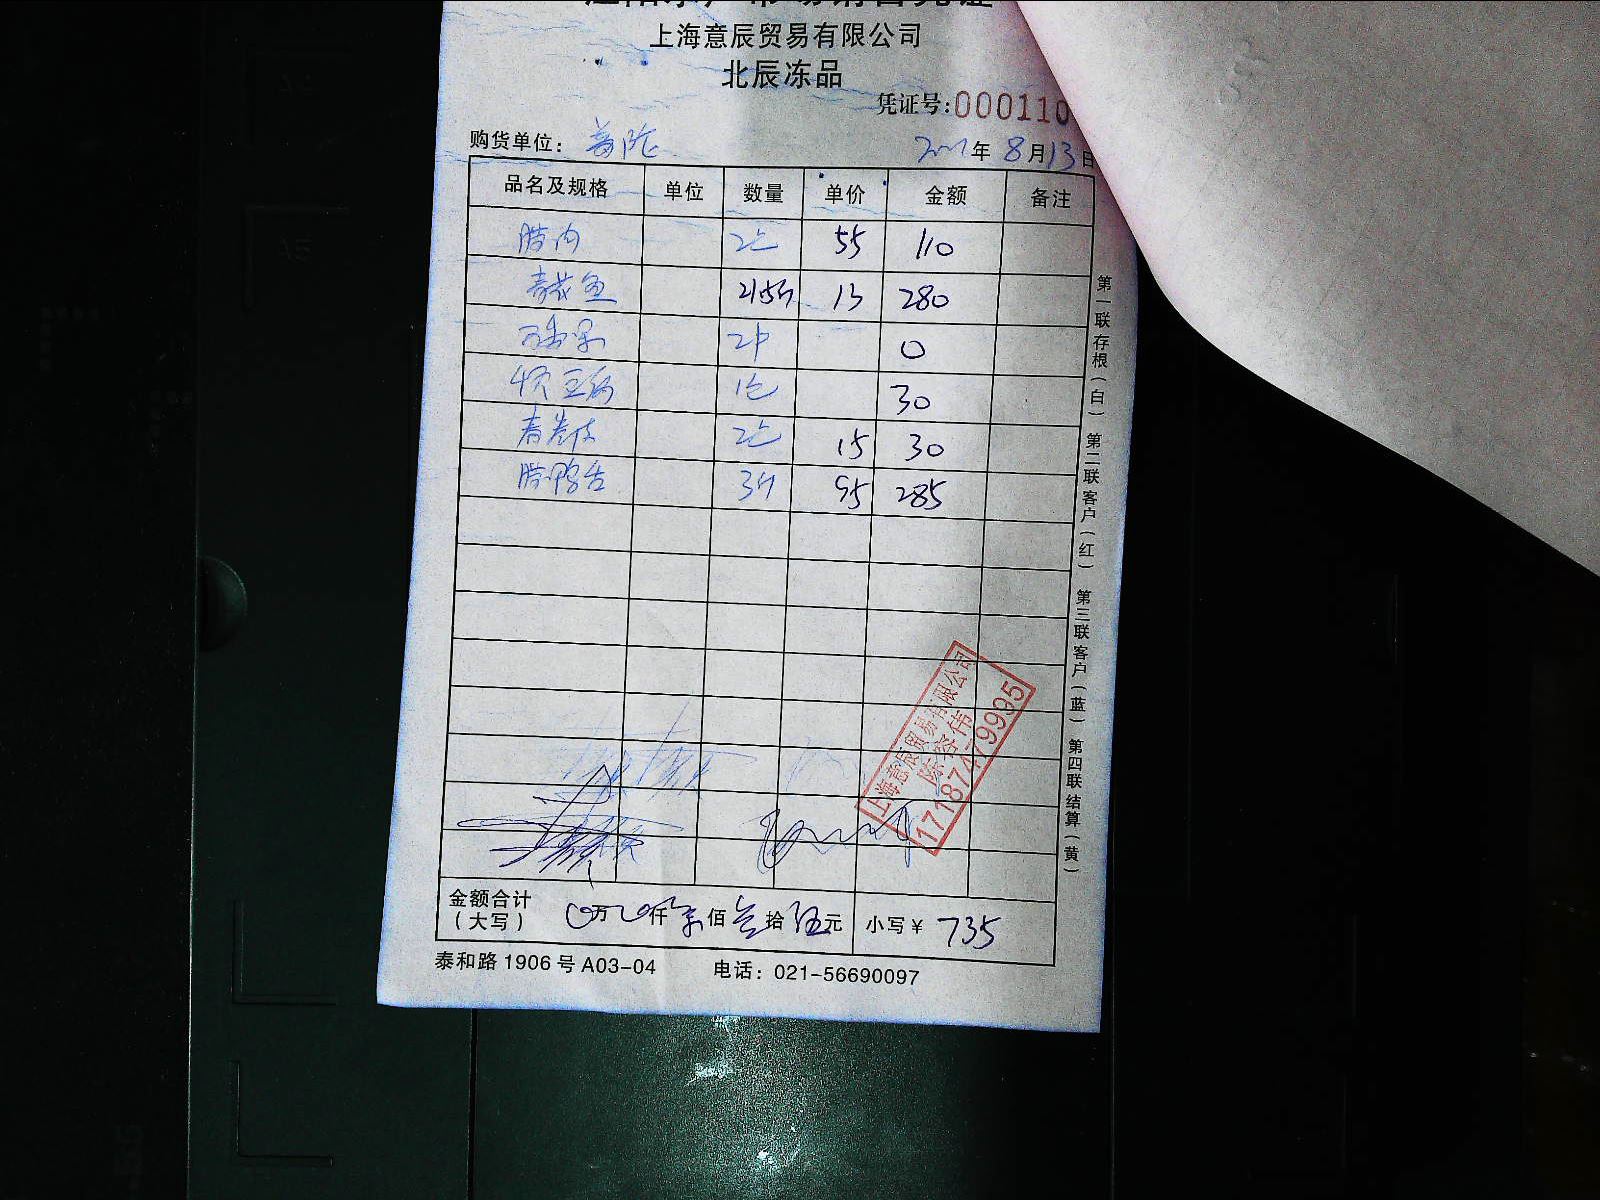 上海意辰贸易有限公司
北辰冻品
凭证号:000110
购货单位: 普陀 年 8月13日
品名及规格 单位 数量 单价 金额 备注
腊肉 2包 55 110
青花鱼 13 280
0
1包 30
春卷皮 2包 15 30
腊鸭舌 3斤 95 285
上海意辰贸易有限公司
17187479995
金额合计
(大写) 万 仟 佰 叁拾伍元 小写¥ 735
泰和路1906号A03-04 电话: 021-56690097
第一联存根(白) 第二联客户(红) 第三联客户(蓝) 第四联结算(黄)